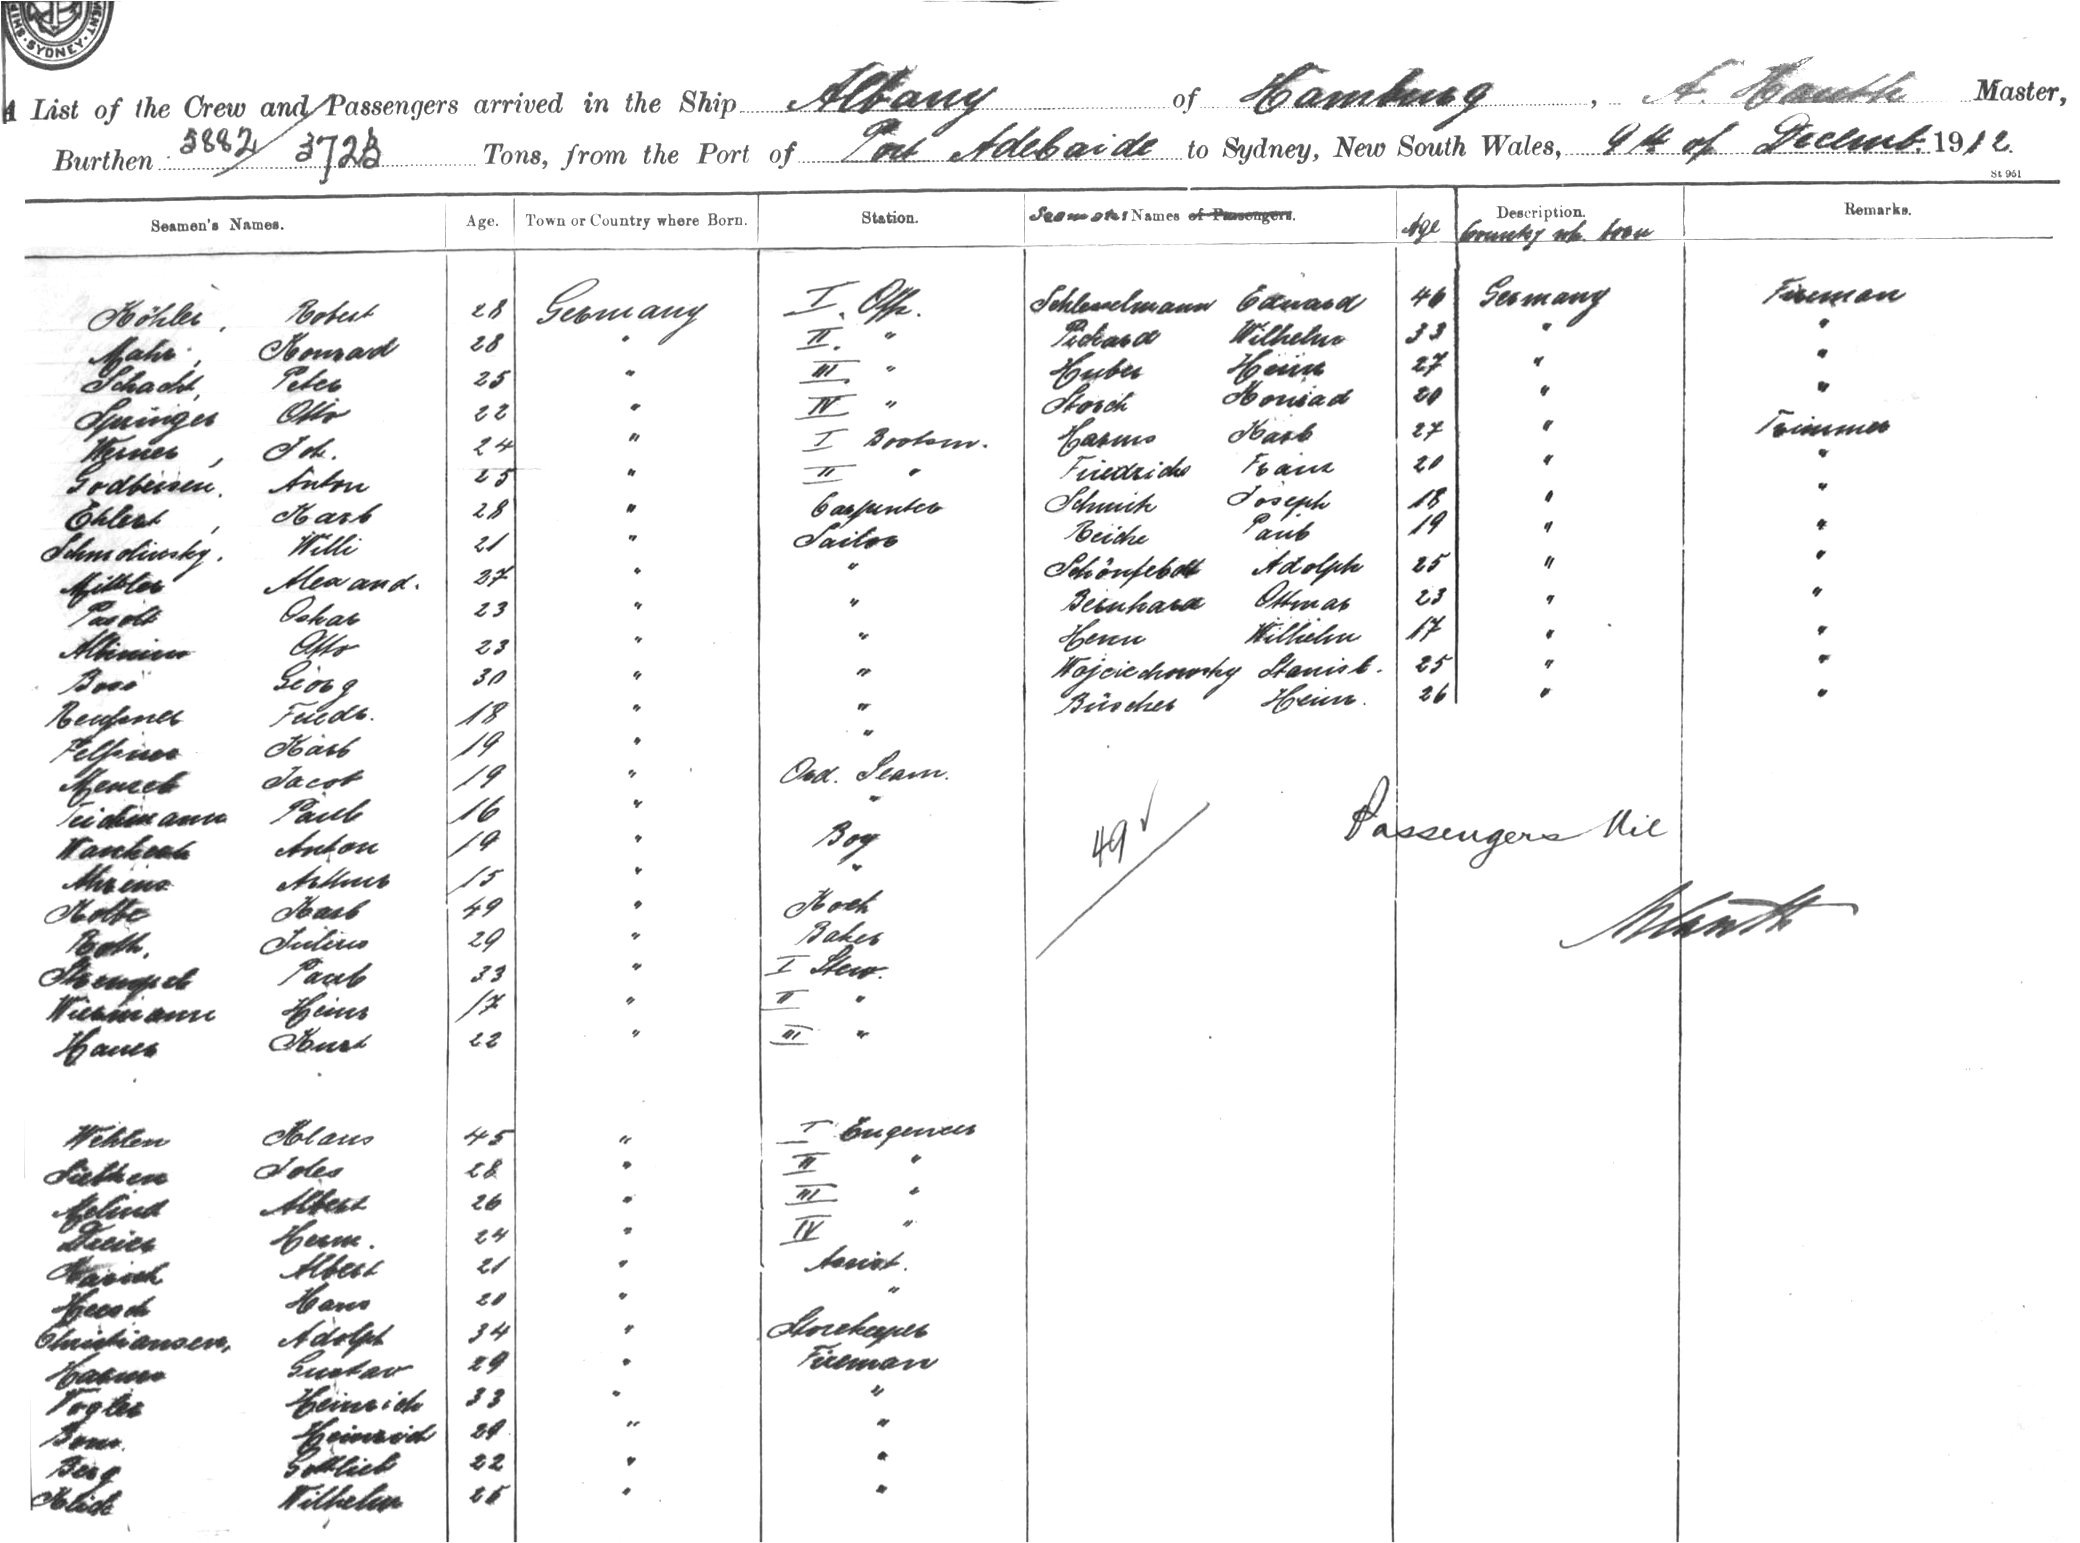 SYDNEY
A List of the Crew and Passengers arrived in the Ship Albany of Hamburg, A. Hauth Master,
Burthen 3882/3723 Tons, from the Port of Port Adelaide to Sydney, New South Wales, 9th of Decemb. 1912.
St 961
Seamen's Names. Age. Town or Country where Born. Station. Seamens Names of Passengers. Age Description. Country wh. born Remarks.
Köhler, Robert 28 Germany I. Off. Edward 46 Germany Fireman
Mahr, Konrad 28 " II. " Pickard Wilhelm 33 " "
Schacht, Peter 25 " III. " Huber Heinr 27 " "
Springer Otto 22 " IV " Storch Konrad 20 " "
Werner, Joh. 24 " I Bootsm. Harms Karl 27 " Trimmer
Godbersen, Anton 25 " II " Friedrichs Franz 20 " "
Ehlert, Karl 28 " Carpenter Schmich Joseph 18 " "
Schmolinsky, Willi 21 " Sailor Reiche Paul 19 " "
Alexand. 27 " " Schönfeldt Adolph 25 " "
Oskar 23 " " Bernhard Ottmar 23 " "
Otto 23 " " Henn Wilhelm 17 " "
Boss Georg 30 " " Wojciechowsky Stanisl. 25 " "
Friedr. 18 " " Büscher Heinr. 26 " "
Karl 19 " "
Menzel Jacob 19 " Ord. Seam.
Teichmann Paul 16 " "
Anton 19 " Boy
Ahrens Arthur 15 " "
Kolbe Karl 49 " Koch
Roth, Julius 29 " Baker
Stempel Paul 33 " I Stew.
Wiesmann Heinr 17 " II "
Hauer Kurt 22 " III "
49
Passengers Nil
AHauth
Wehlen Klaus 45 " I Engeneer
28 " II "
Albert 26 " III "
Herm. 24 " IV "
Albert 21 " Assist.
Heesch Hans 20 " "
Christiansen, Adolph 34 " Storekeeper
Harms Gustav 29 " Fireman
Vogler Heinrich 33 " "
Heinrich 29 " "
Berg Gottlieb 22 " "
Klick Wilhelm 25 " "